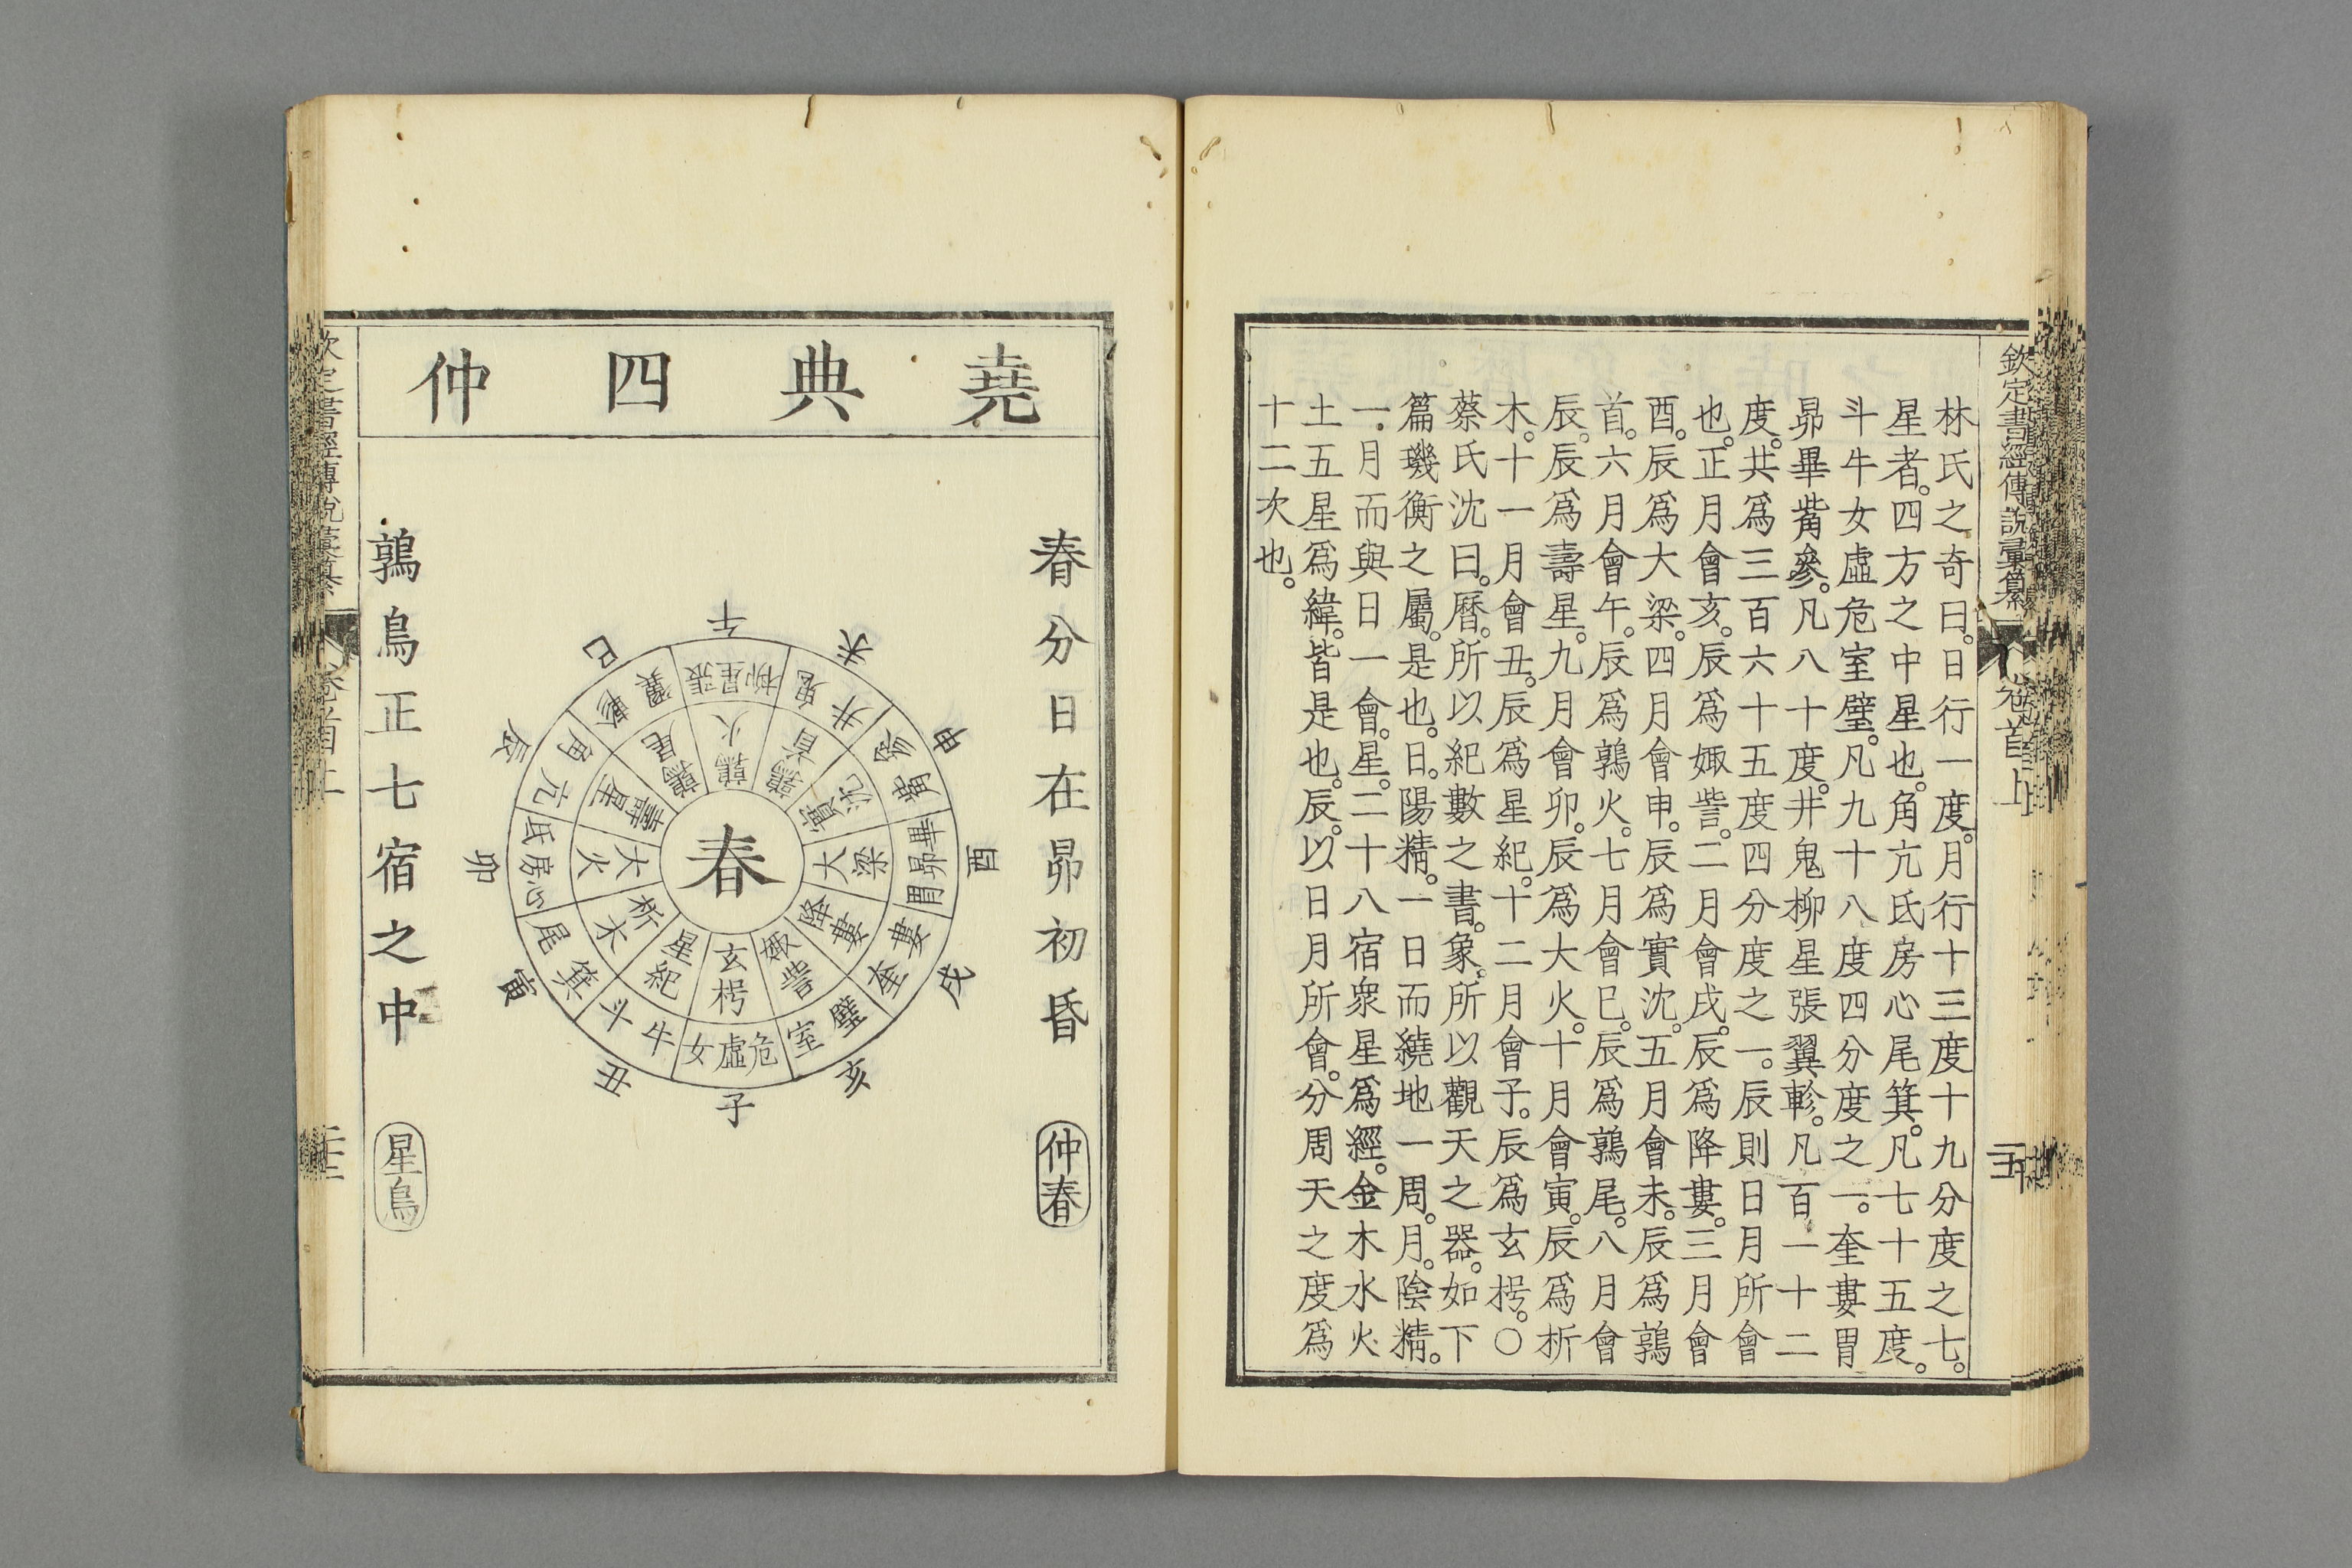 欽定書經傳說彙纂
卷首上
林氏之奇曰。日行一度。月行十三度十九分度之七。
星者。四方之中星也。角亢氐房心尾箕。凡七十五度。
斗牛女虛危室壁。凡九十八度四分度之一。奎婁胃
昴畢觜參。凡八十度。井鬼柳星張翼軫。凡百一十二
度。共爲三百六十五度四分度之一。辰則日月所會
也。正月會亥。辰爲娵訾。二月會戌。辰爲降婁。三月會
酉。辰爲大梁。四月會申。辰爲實沈。五月會未。辰爲鶉
首。六月會午。辰爲鶉火。七月會巳。辰爲鶉尾。八月會
辰。辰爲壽星。九月會卯。辰爲大火。十月會寅。辰爲析
木。十一月會丑。辰爲星紀。十二月會子。辰爲玄枵。○
蔡氏沈曰。曆。所以紀數之書。象。所以觀天之器。如下
篇璣衡之屬。是也。日。陽精。一日而繞地一周。月。陰精。
一月而與日一會。星。二十八宿衆星爲經。金木水火
土五星爲緯。皆是也。辰。以日月所會。分周天之度爲
十二次也。
堯典四仲
春分日在昴初昏
仲春
午
未
申
酉
戌
亥
子
丑
寅
卯
辰
巳
柳星張
鬼井
參觜
畢昴胃
婁奎
壁室
危虛女
牛斗
箕尾
心房氐
亢角
軫翼
鶉火
鶉首
實沈
大梁
降婁
娵訾
玄枵
星紀
析木
大火
壽星
鶉尾
春
鶉鳥正七宿之中
星鳥
欽定書經傳說彙纂
卷首上